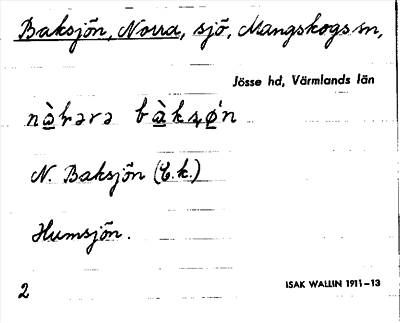 Baksjön, Norra, sjö, Mangskogs sn,
Jösse hd, Värmlands län
N. Baksjön (E.k.)
Humsjön.
2
ISAK WALLIN 1911-13